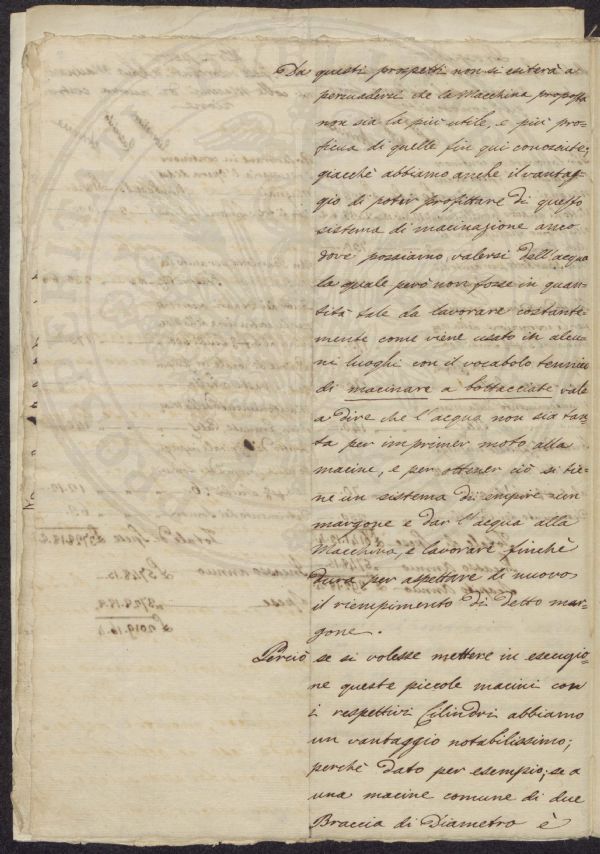 Da questi prospetti non si esiterà a
persuadersi che la Macchina proposta
non sia la più utile, e più pro=
ficua di quelle fin qui conosciute;
giacchè abbiamo anche il vantag=
gio di poter profittare di questo
sistema di macinazione anco
dove possiamo valersi dell'acqua
la quale però non fosse in quan=
tità tale da lavorare costante=
mente come viene usato in alcu=
ni luoghi con il vocabolo tennico
di macinare a bottacciate vale
a dire che l'acqua non sia tan=
ta per imprimer moto alla
macine, e per ottener ciò si tie=
ne un sistema di empire un
margone e dar l'acqua alla
Macchina, e lavorare finchè
dura per aspettare di nuovo
il riempimento di detto mar=
gone.
Perciò se si volesse mettere in esecuzio=
ne queste piccole macini con
i respettivi Cilindri abbiamo
un vantaggio notabilissimo;
perchè dato per esempio, se a
una macine comune di due
Braccia di Diametro è